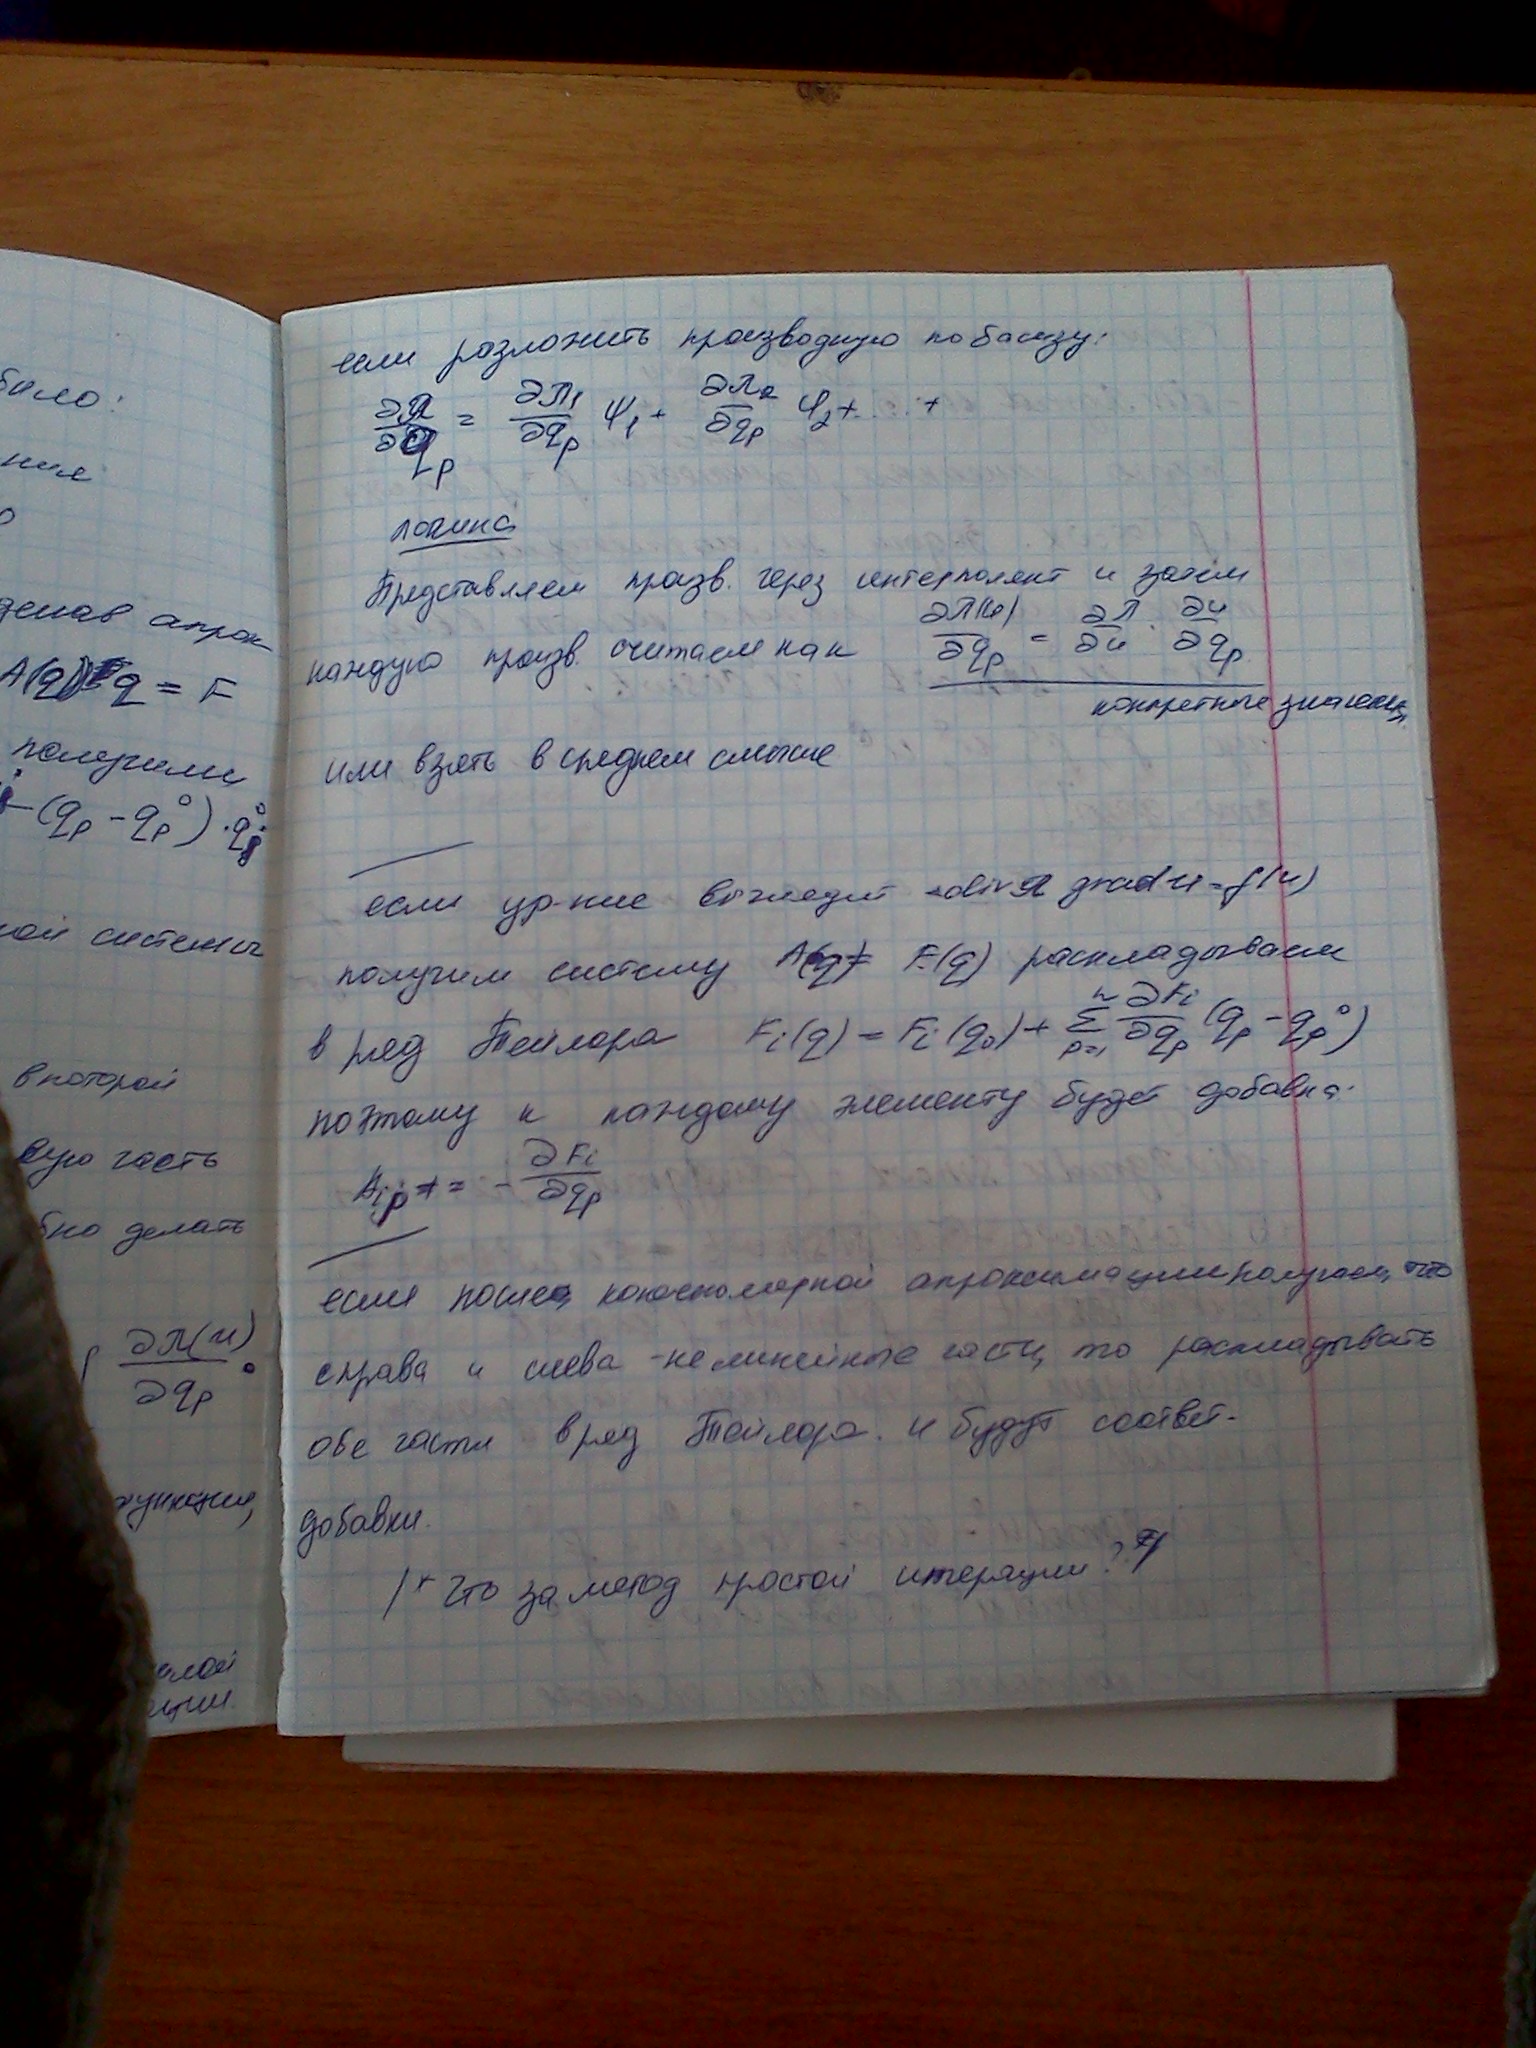 было:
ния
о
A(q) q = F
получили
(qₚ - qₚ⁰) · q
ной системы
в которой
вую часть
бно делать
∂λ(u)/∂qₚ
функции,
если разложить производную по базису:
∂λ/∂qₚ = ∂λ₁/∂qₚ ψ₁ + ∂λ₂/∂qₚ ψ₂ + ... +
логика
Представляем произв. через интерполянт и затем
каждую произв. считаем как ∂λ(u)/∂qₚ = ∂λ/∂u · ∂u/∂qₚ
конкретные значен.
или взять в среднем смысле
если ур-ние выглядит -div λ grad u = f(u)
получим систему A(q) = F(q) раскладываем
в ряд Тейлора Fᵢ(q) = Fᵢ(q₀) + Σₚ₌₁ⁿ ∂Fᵢ/∂qₚ (qₚ - qₚ⁰)
поэтому к каждому элементу будет добавка.
Aᵢₚ += - ∂Fᵢ/∂qₚ
если после конечномерной апроксимации получаем, что
справа и слева - нелинейные части, то раскладывать
обе части в ряд Тейлора. и будут соответ-
добавки.
/* Что за метод простой итерации? */